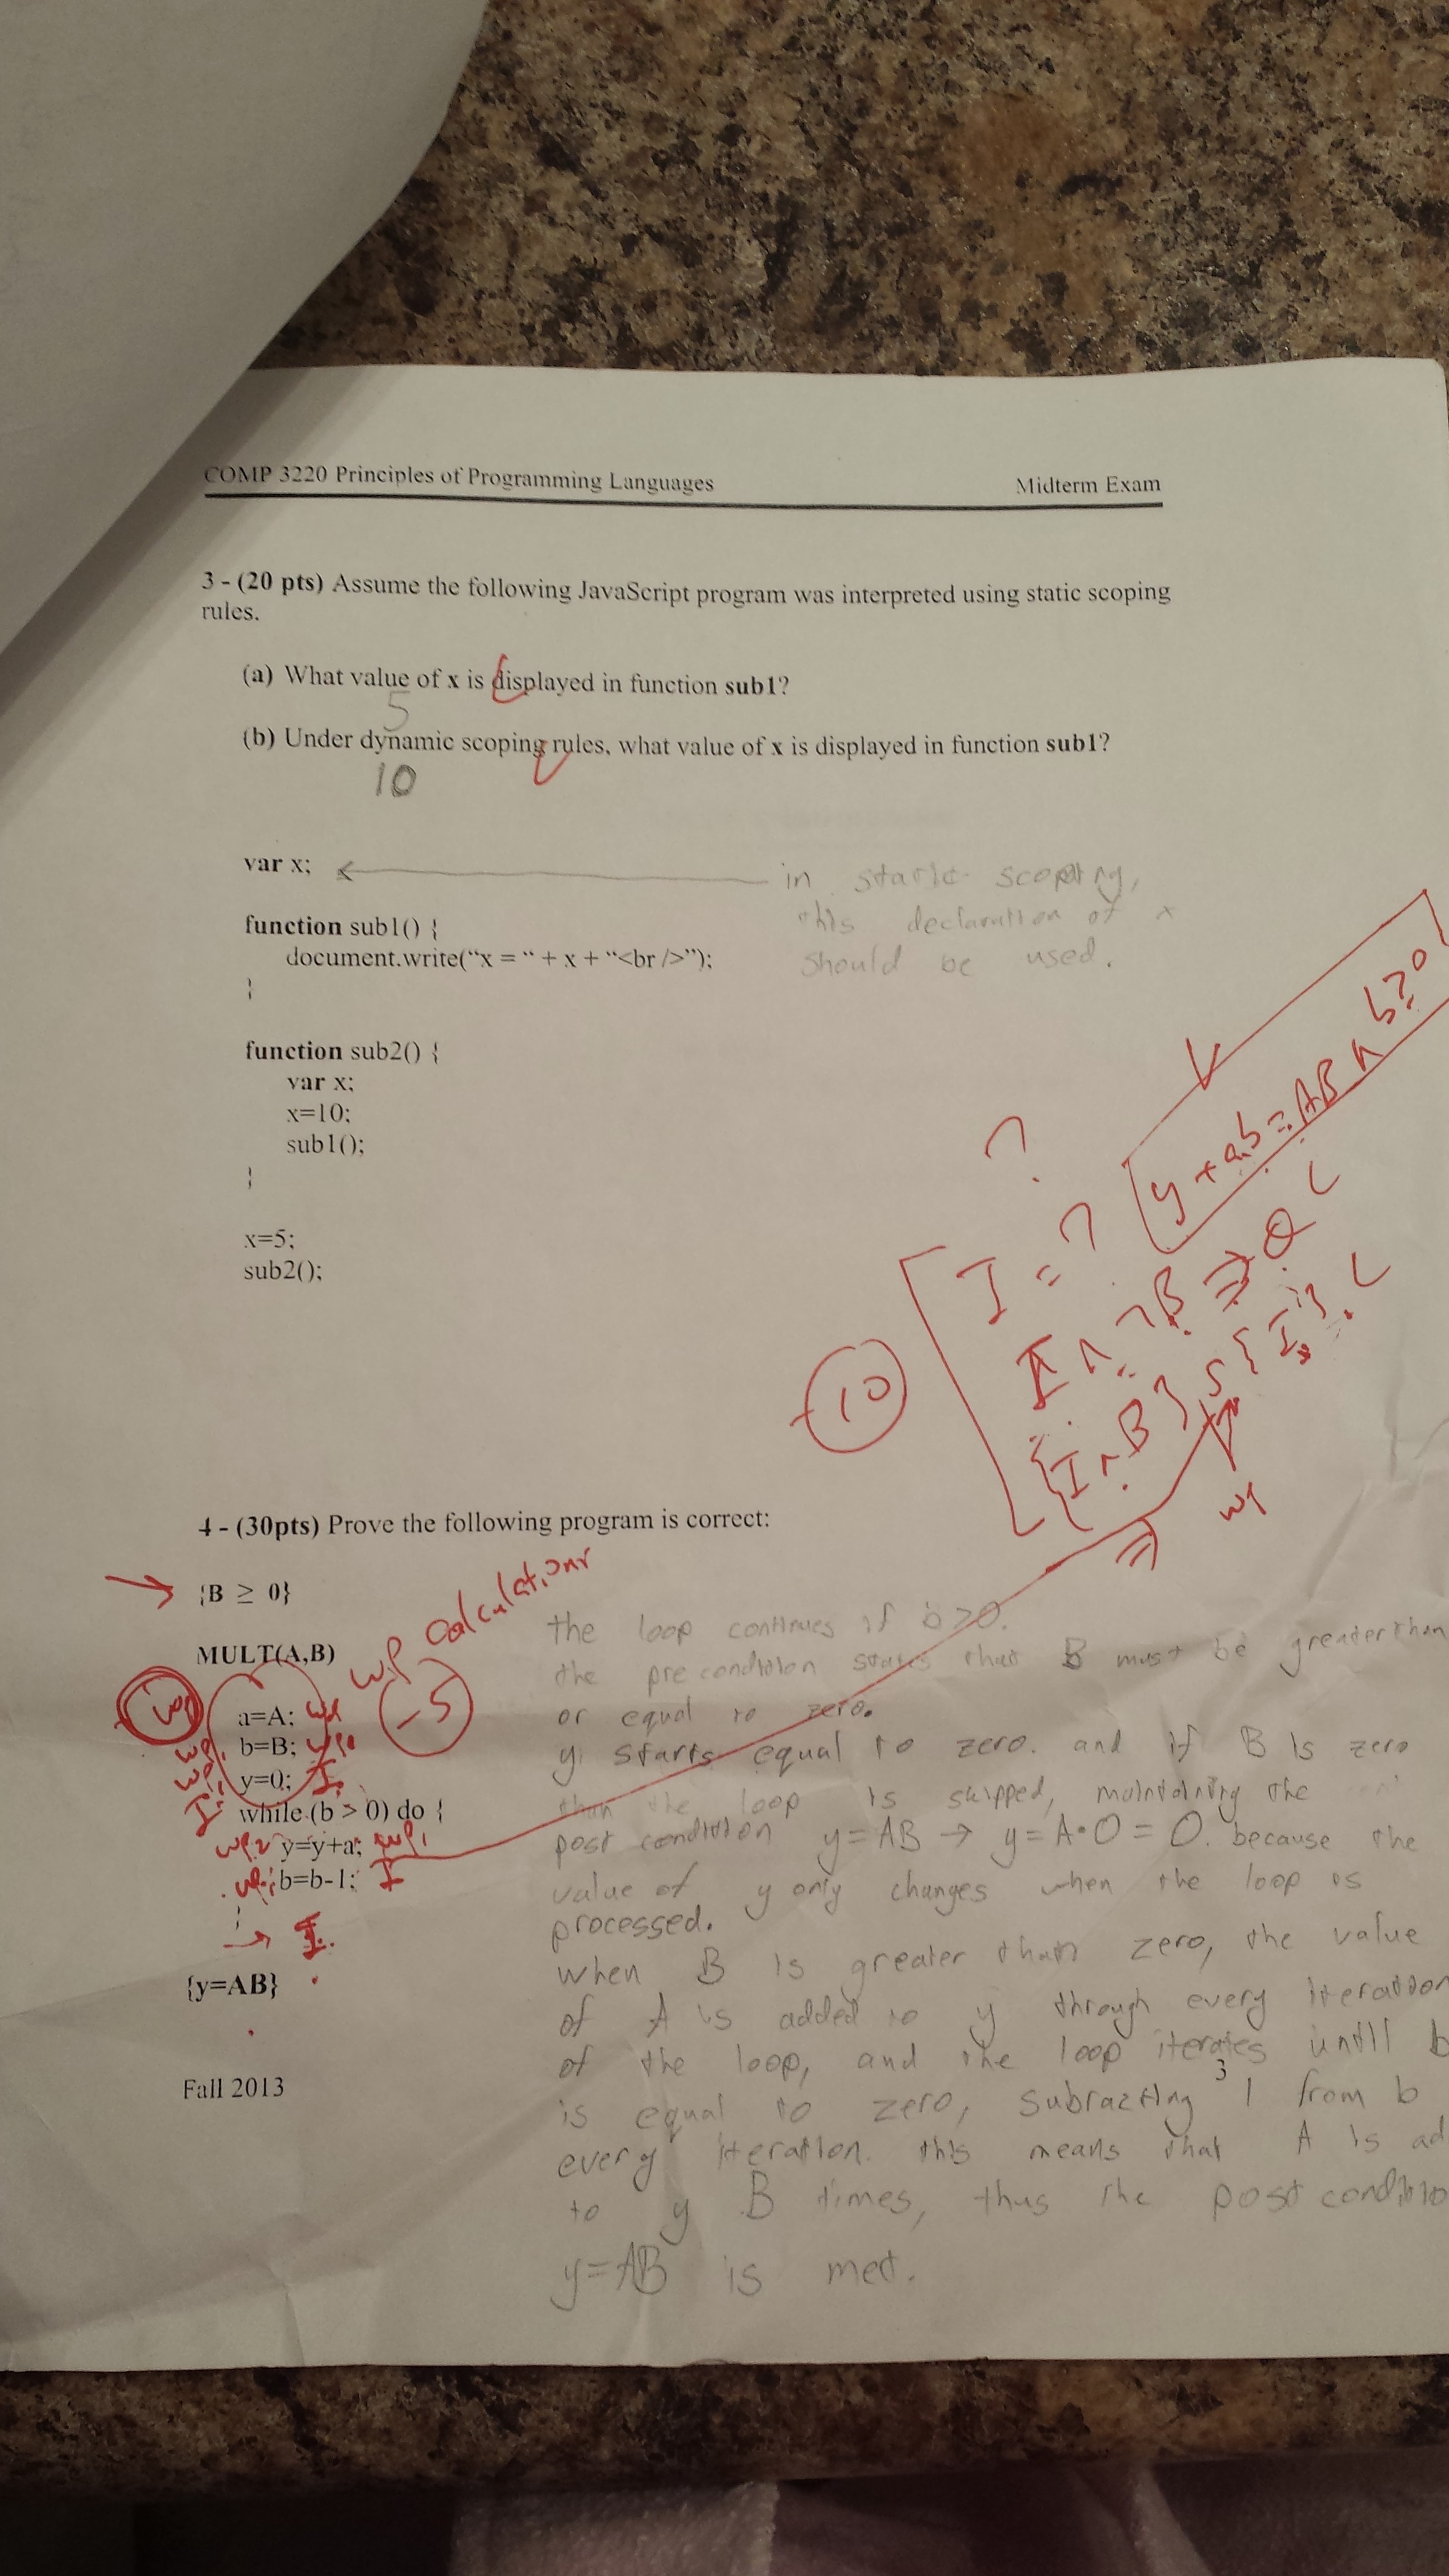 COMP 3220 Principles of Programming Languages Midterm Exam
3 - (20 pts) Assume the following JavaScript program was interpreted using static scoping
rules.
(a) What value of x is displayed in function sub1?
5
(b) Under dynamic scoping rules, what value of x is displayed in function sub1?
10
var x;
in static scoping,
this declaration of x
should be used.
function sub1() {
document.write("x = " + x + "<br />");
}
function sub2() {
var x;
x=10;
sub1();
}
x=5;
sub2();
?
I = ?
y + ab = AB ∧ b≥0
I ∧ ¬B ⇒ Q
{I ∧ B} S {I}
-10
wp
⇒
4 - (30pts) Prove the following program is correct:
{B ≥ 0}
wp calculations
-5
MULT(A,B)
a=A;
b=B;
y=0; I
while (b > 0) do {
wp2 y=y+a; wp1
wp1 b=b-1; I
}
→ I
{y=AB}
the loop continues if b>0.
the precondition states that B must be greater than
or equal to zero.
y starts equal to zero. and if B is zero
than the loop is skipped, maintaining the
post condition y=AB → y=A·0=0. because the
value of y only changes when the loop is
processed.
when B is greater than zero, the value
of A is added to y through every iteration
of the loop, and the loop iterates untill b
is equal to zero, subracting 1 from b
every iteration. this means that A is ad
to y B times, thus the post conditio
y=AB is met.
Fall 2013
3